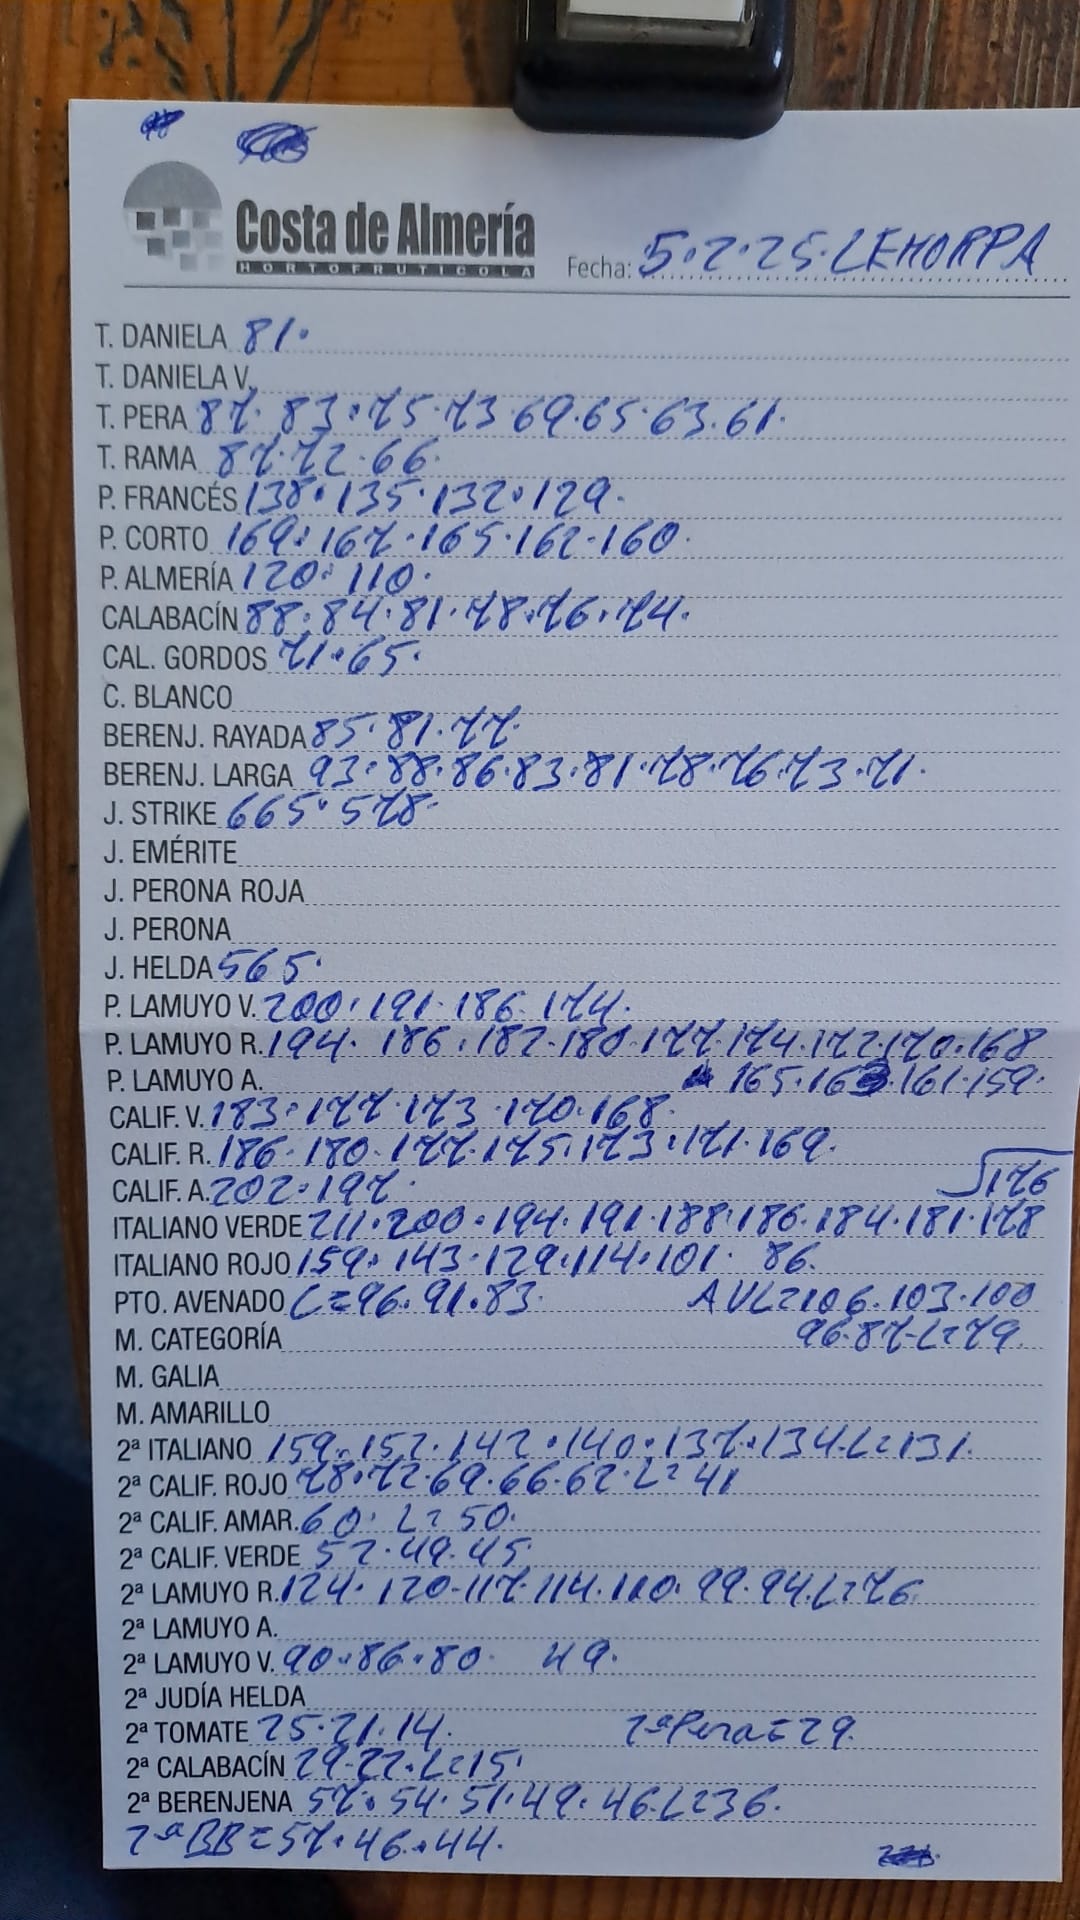 Costa de Almería
HORTOFRUTICOLA
Fecha: 5.2.25. LEHORPA
T. DANIELA 81.
T. DANIELA V.
T. PERA 87. 83. 75. 73 69. 65. 63. 61.
T. RAMA 87. 72. 66.
P. FRANCÉS 138. 135. 132. 129.
P. CORTO 169. 167. 165. 162. 160.
P. ALMERÍA 120. 110.
CALABACÍN 88. 84. 81. 78. 76. 74.
CAL. GORDOS 71. 65.
C. BLANCO
BERENJ. RAYADA 85. 81. 77.
BERENJ. LARGA 93. 88. 86. 83. 81. 78. 76. 73. 71.
J. STRIKE 665. 578.
J. EMÉRITE
J. PERONA ROJA
J. PERONA
J. HELDA 565.
P. LAMUYO V. 200. 191. 186. 174.
P. LAMUYO R. 194. 186. 182. 180. 177. 174. 172. 170. 168
P. LAMUYO A. 165. 163. 161. 159.
CALIF. V. 183. 177. 173. 170. 168.
CALIF. R. 186. 180. 177. 175. 173. 171. 169.
CALIF. A. 202. 197. 176
ITALIANO VERDE 211. 200. 194. 191. 188. 186. 184. 181. 178
ITALIANO ROJO 159. 143. 129. 114. 101. 86.
PTO. AVENADO L=96. 91. 83. AVL=106. 103. 100
M. CATEGORÍA 96. 87. L=79.
M. GALIA
M. AMARILLO
2ª ITALIANO 159. 152. 142. 140. 137. 134. L=131.
2ª CALIF. ROJO 78. 72. 69. 66. 62. L=41
2ª CALIF. AMAR. 60. L=50.
2ª CALIF. VERDE 52. 49. 45.
2ª LAMUYO R. 124. 120. 117. 114. 110. 99. 94. L=76.
2ª LAMUYO A.
2ª LAMUYO V. 90. 86. 80. 49.
2ª JUDÍA HELDA
2ª TOMATE 25. 21. 14. 2ª Pera=29.
2ª CALABACÍN 29. 22. L=15.
2ª BERENJENA 57. 54. 51. 49. 46. L=36.
2ª BB=57. 46. 44.